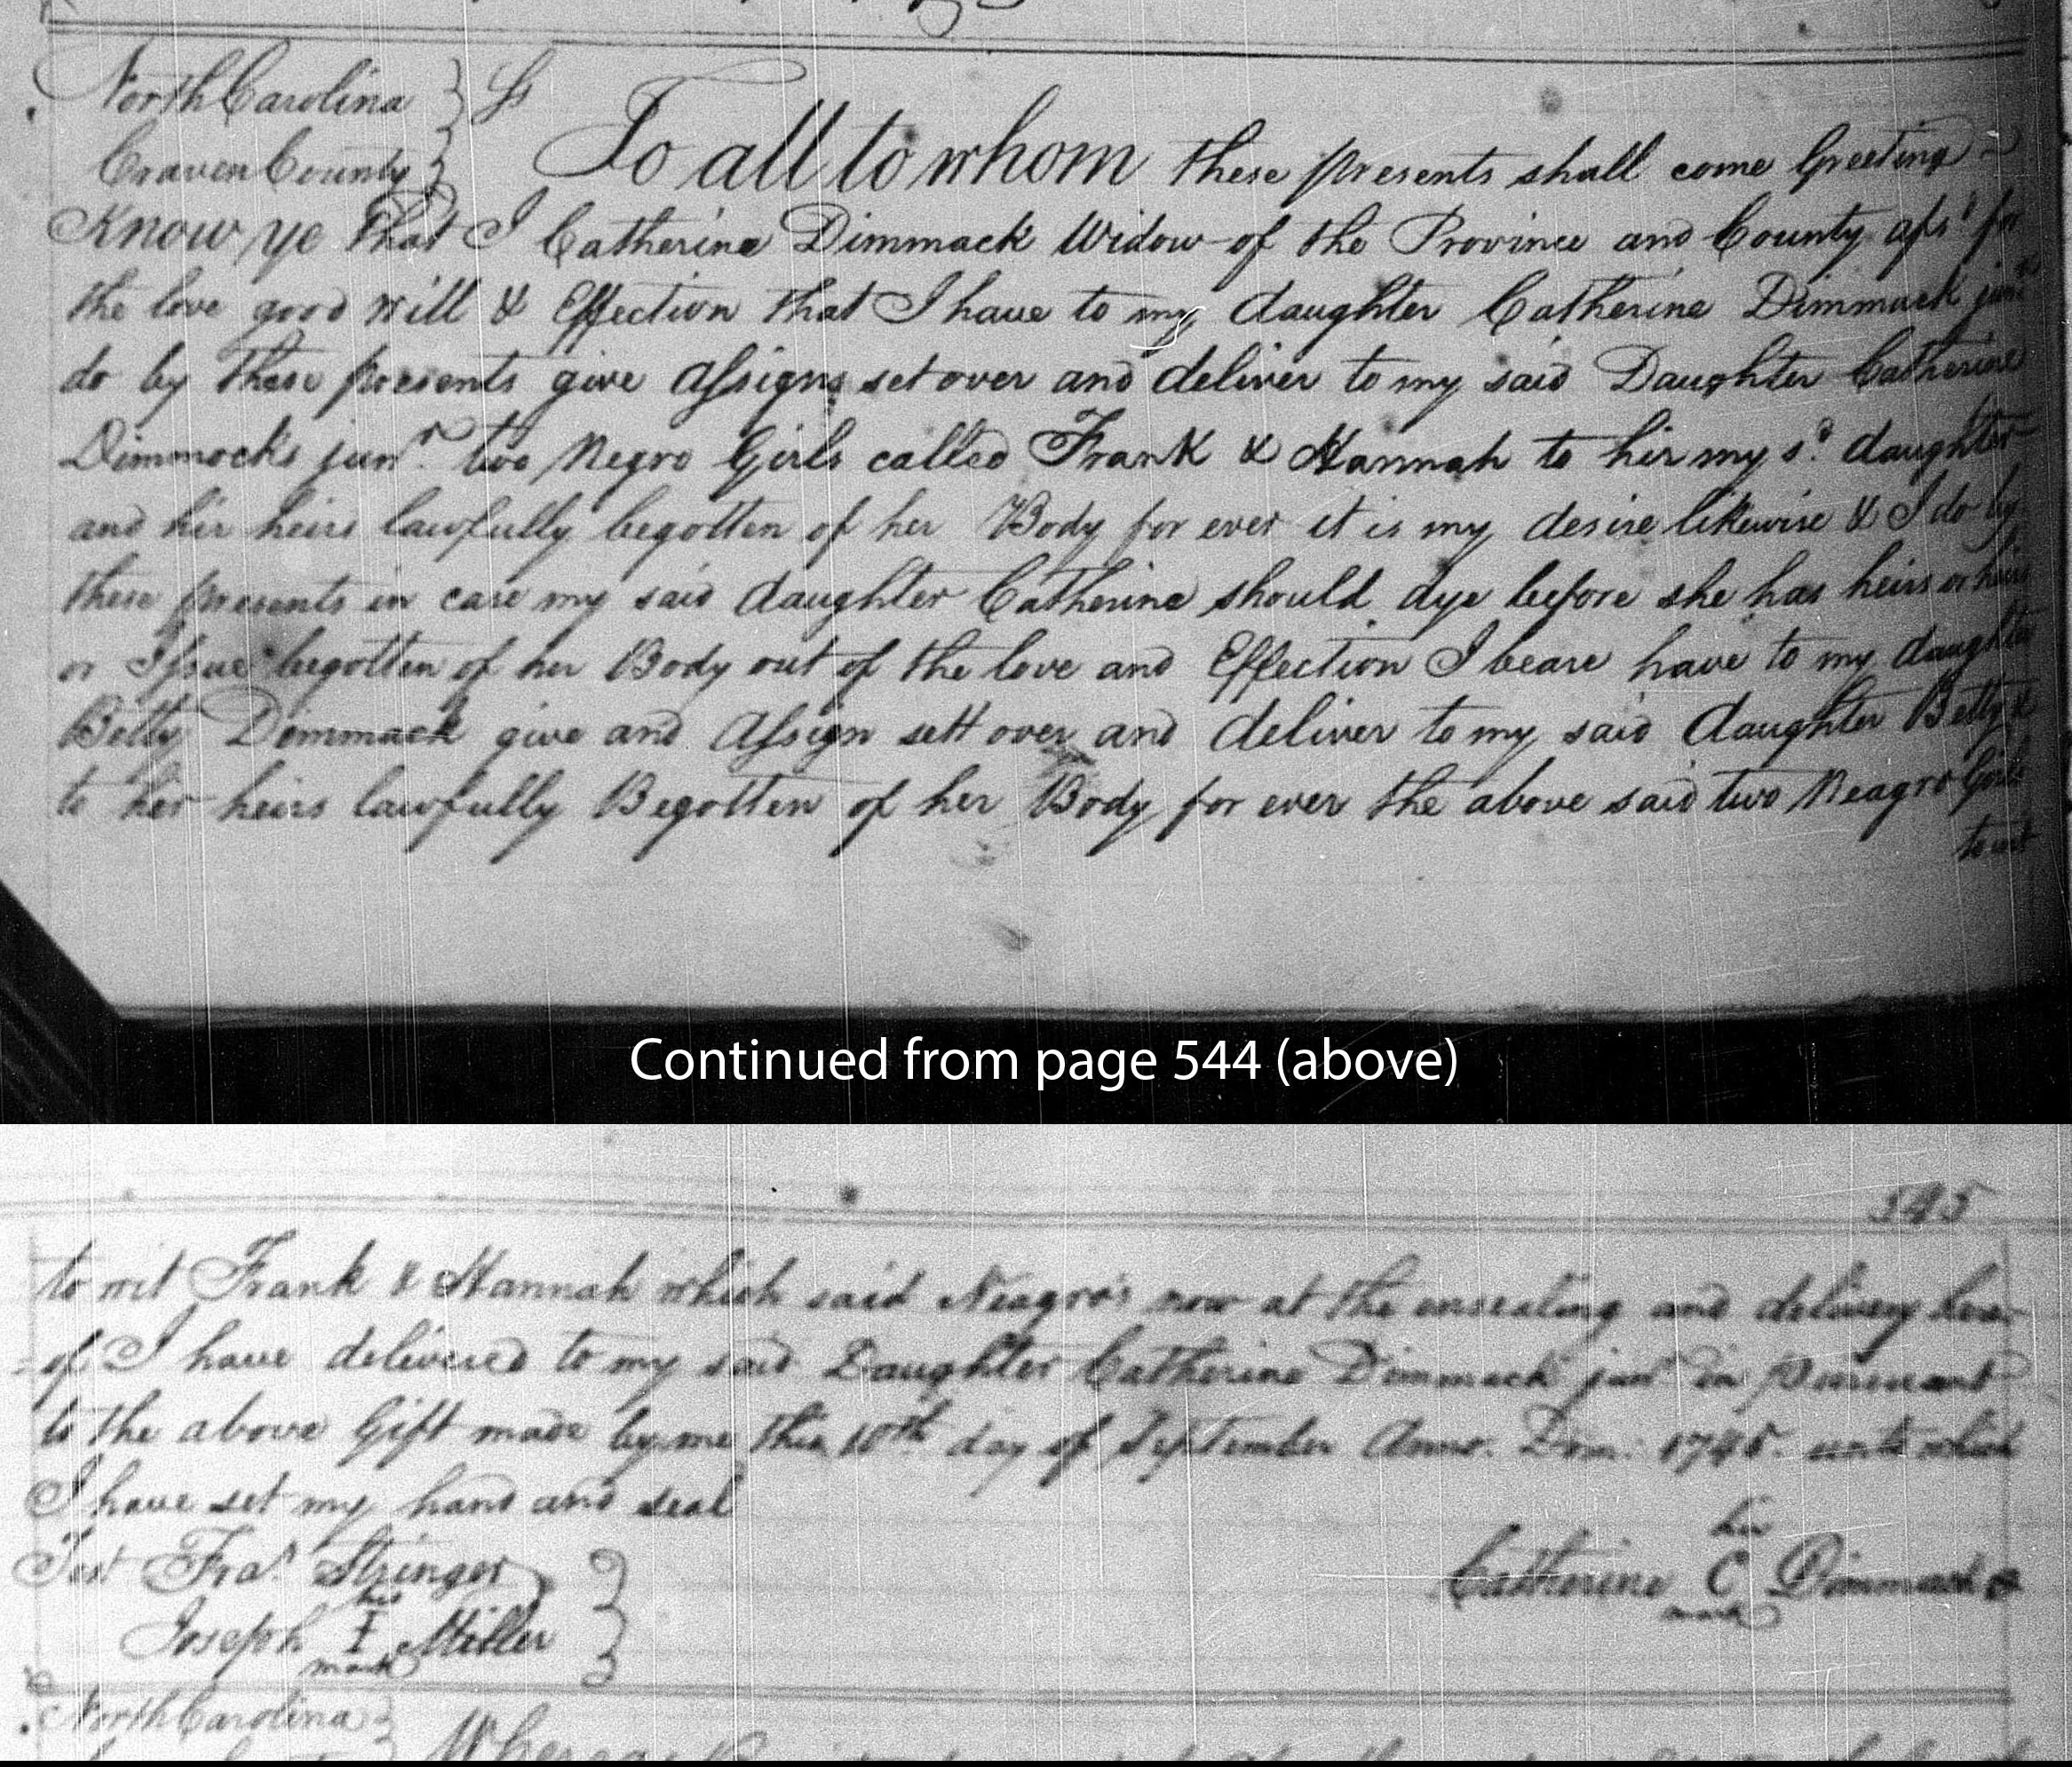 North Carolina } Ss
Craven County } To all to whom these presents shall come Greeting
Know ye that I Catherine Dimmack Widow of the Province and County afsd for
the love good will & Effection that I have to my daughter Catherine Dimmack junr
do by these presents give Assigns set over and deliver to my said Daughter Catherine
Dimmocks junr. two Negro Girls called Frank & Hannah to hir my sd. daughter
and hir heirs lawfully begotten of her Body for ever it is my desire likewise & I do by
these presents in case my said daughter Catherine should dye before she has heirs or heirs
or Issue begotten of her Body out of the love and Effection I beare have to my daughter
Betty Dimmack give and Assign sett over and deliver to my said daughter Betty &
to her heirs lawfully Begotten of her Body for ever the above said two Neagro Girls
to wit
Continued from page 544 (above)
545
to wit Frank & Hannah which said Neagro's now at the ensealing and delivery here-
=of I have delivered to my said Daughter Catherine Dimmack junr in
to the above Gift made by me this 10th day of September Anno. Dom: unto which
I have set my hand and seal
her
Test Fras. Stringer } Catherine C Dimmack
his mark
Joseph I Miller
mark
North Carolina }
Whereas